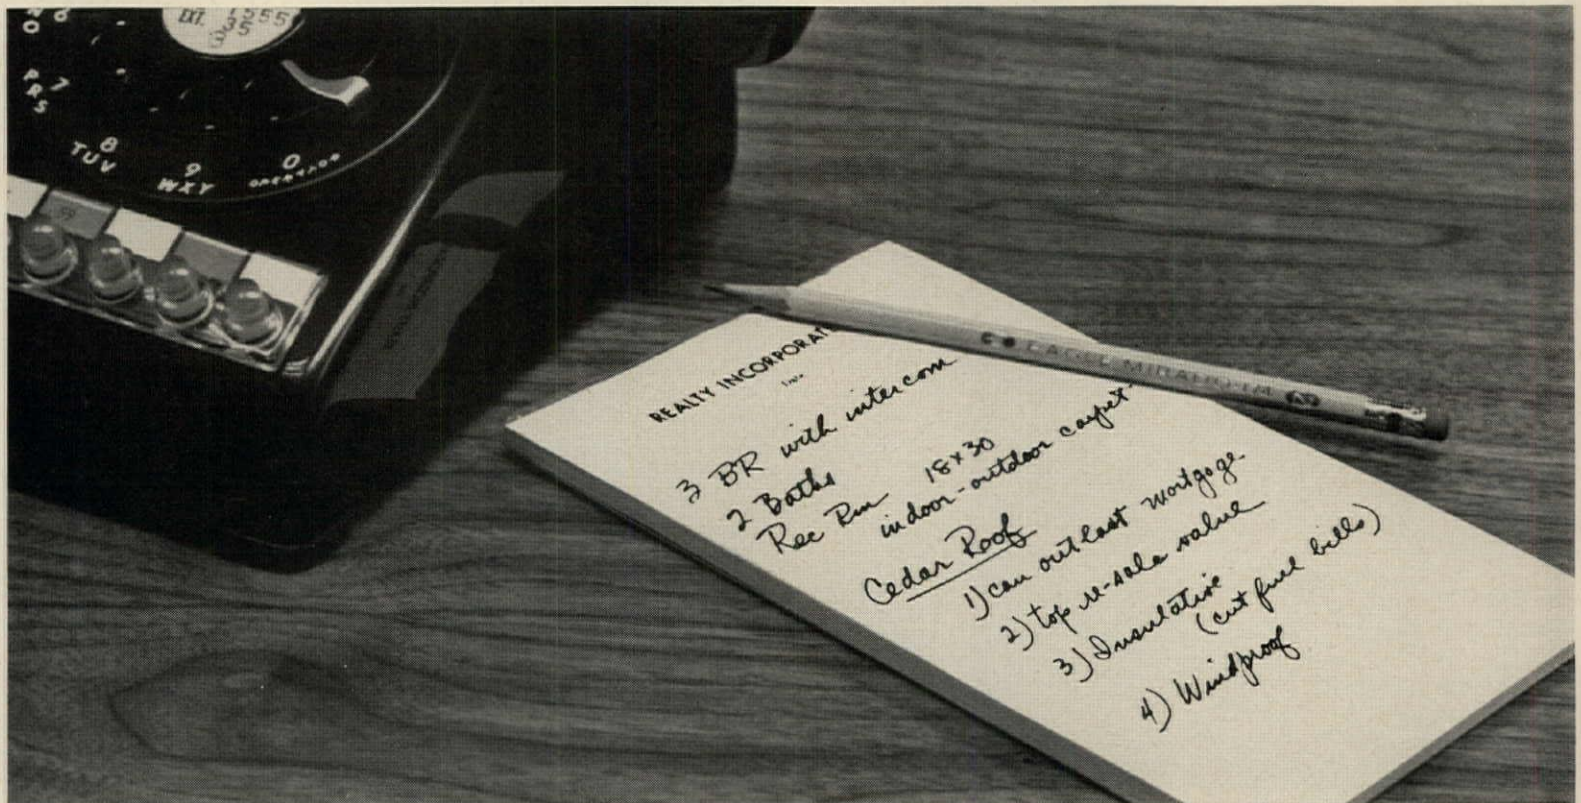 EXT.
7
PRS
8
TUV
9
WXY
0
OPERATOR
REALTY INCORPORAT
3 BR with intercom
2 Baths
Rec Rm 18x30
indoor-outdoor carpet
Cedar Roof
1) can outlast mortgage
2) top re-sale value
3) Insulative
(cut fuel bills)
4) Windproof
EAGLE MIRADO 174